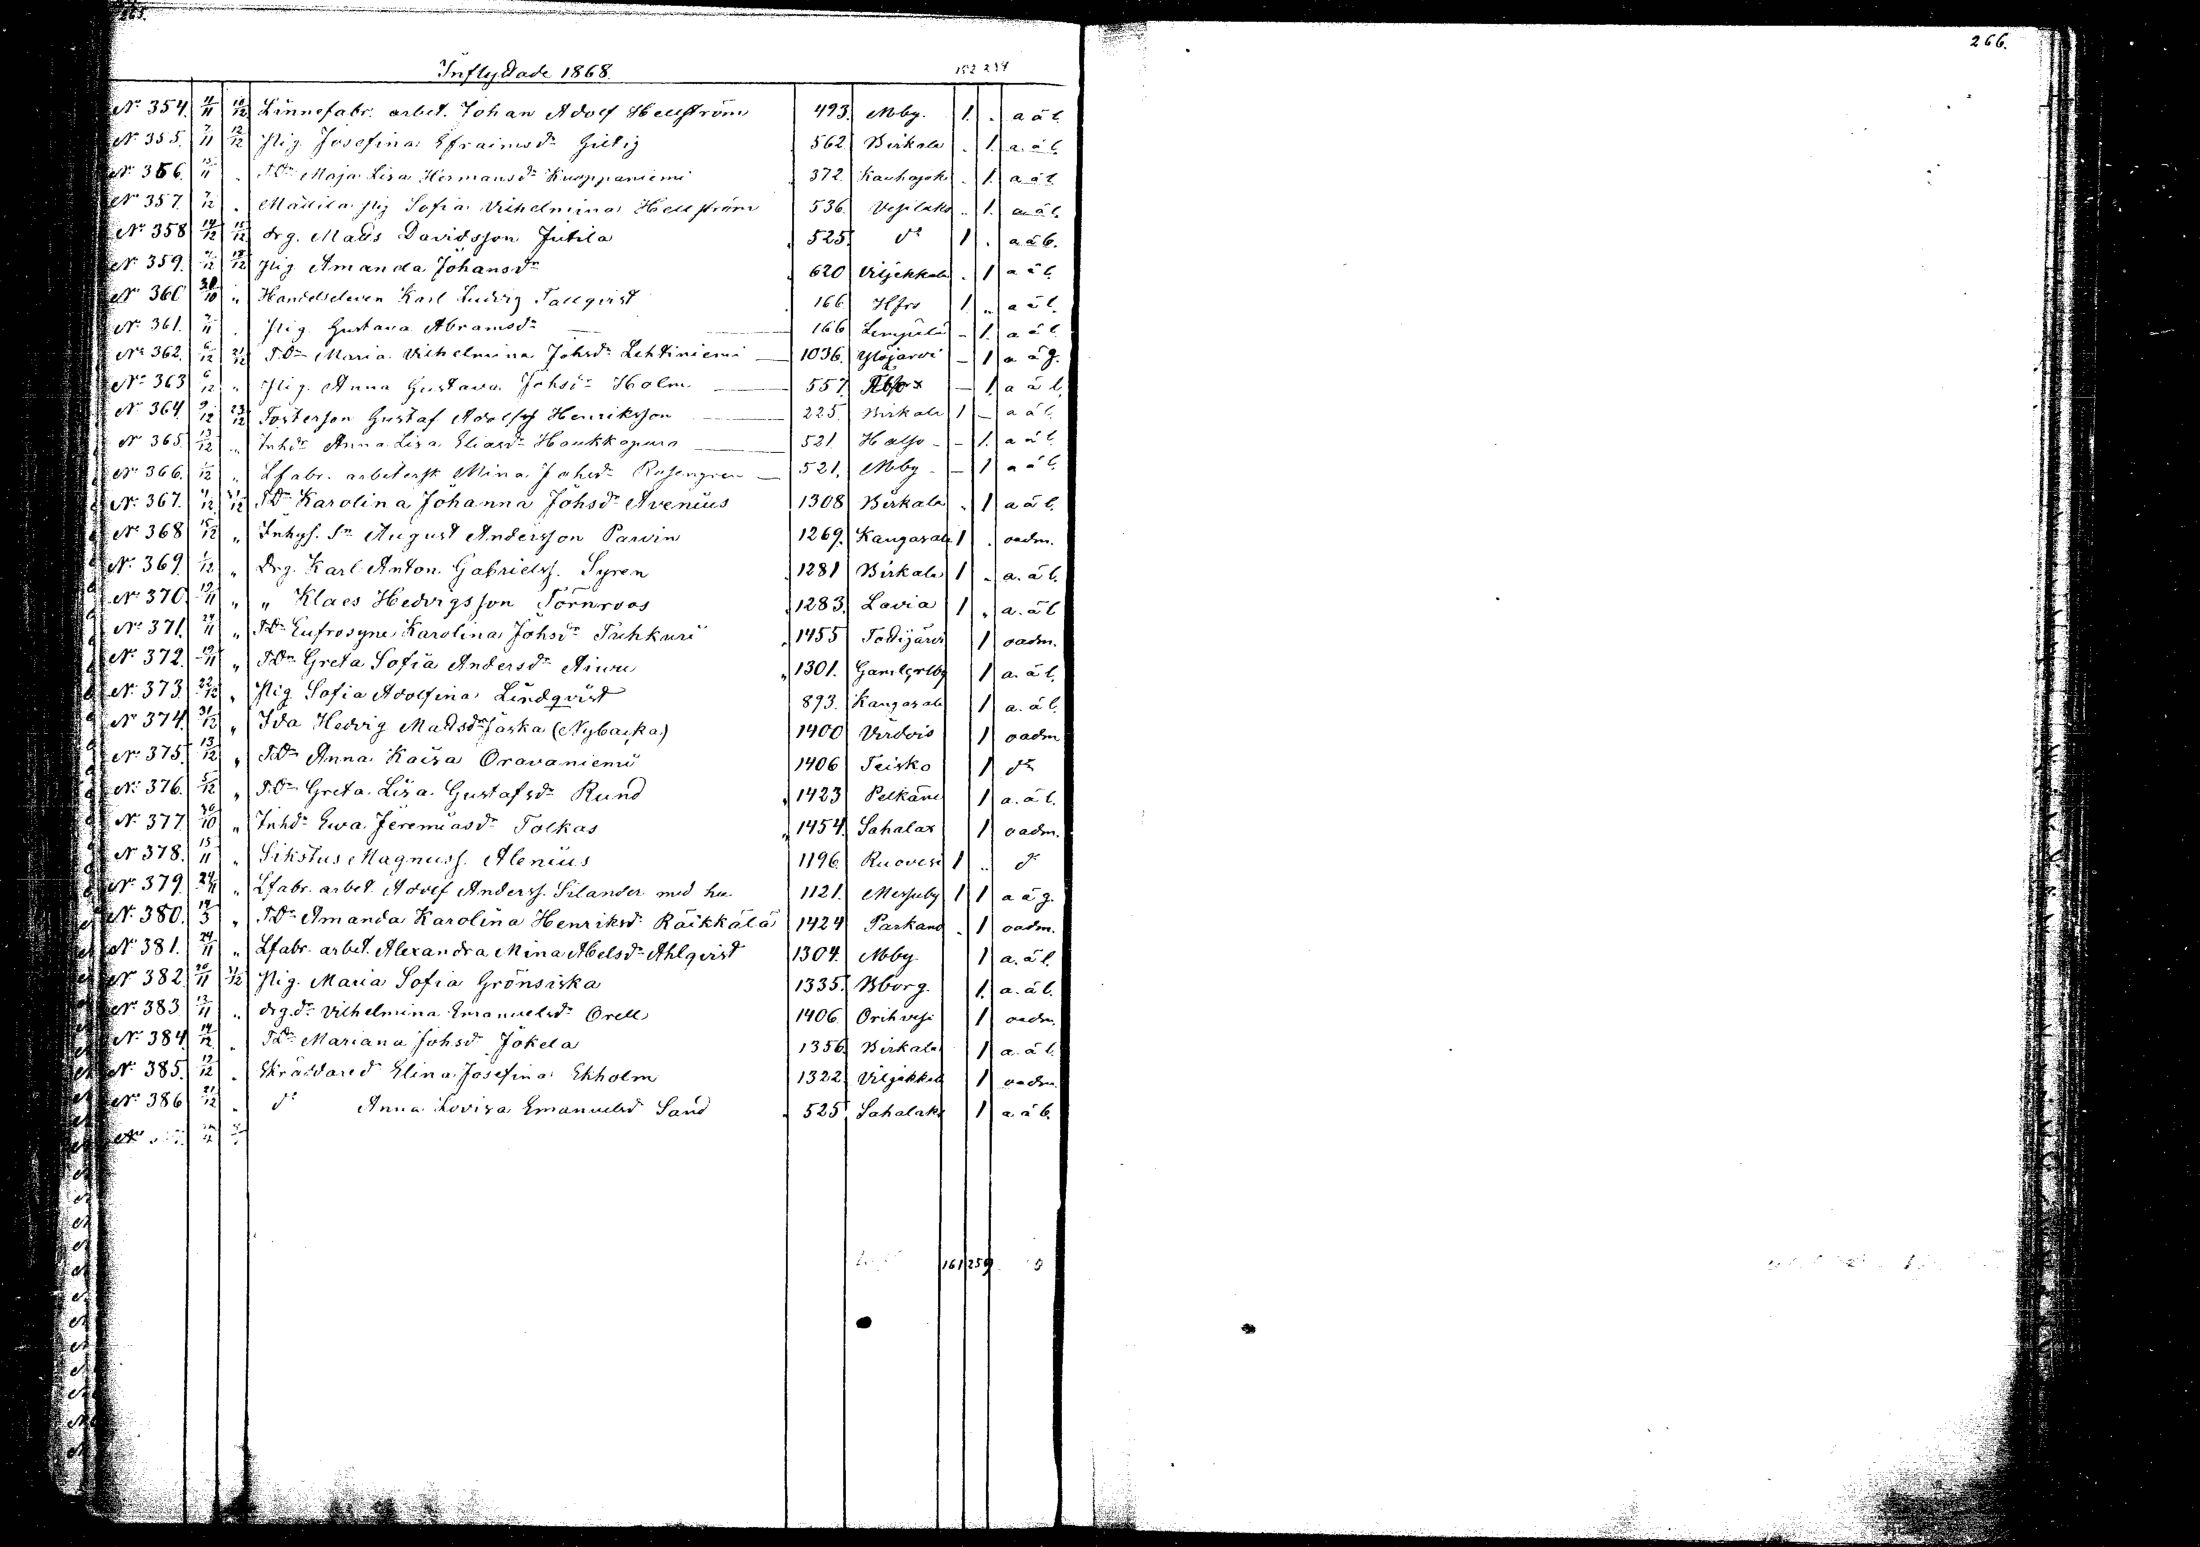 265.
266.
Inflyttade 1868.
152 234
No 354. 4/11 10/12 Linnefabr. arbet. Johan Adolf Hellström 493. Nby. 1. . a ä l.
No 355. 7/11 12/12 Pig. Josefina Efraimsdr Gillig 562 Birkala . 1. a. ä l.
No 356. 15/11 . T.Dr Maja Lisa Hermansdr Kuoppaniemi 372. Kauhajoki . 1. a ä l.
No 357. 7/12 . Mattila pig Sofia Vilhelmina Hellström 536. Vesilaks . 1. a ä l.
No 358 14/12 15/12 drg. Matts Davidsson Jutila 525. do 1 . a ä l.
No 359. 7/12 18/12 Pig. Amanda Johansdr 620 Viljakkala . 1 a ä l.
No 360 30/10 " Handelseleven Karl Ludvig Tallqvist 166 Hfrs 1. " a ä l.
No 361. 7/11 . Pig. Gustava Abramsdr — 166 Lempälä – 1. a ä l.
No 362. 6/12 21/12 T.Dr Maria Vilhelmina Johsdr Lehtiniemi — 1036. Ylöjärvi – 1 a ä g.
No 363 6/12 " Pig. Anna Gustava Johsdr Holm — 557. – 1. a ä l.
No 364. 9/12 23/12 Fosterson Gustaf Adolf Henriksson — 225. Birkala 1 – a ä l.
No 365. 13/12 " Inhdr Anna Lisa Eliasdr Haukkapuro — 521. Halso – – 1. a ä l.
No 366. 1/12 " Lfabr. arbetersk Mina Johsdr Rosengren — 521. Nby – – 1 a ä l.
No 367. T.Dr Karolina Johanna Johsdr Avenius 1308 Birkala . 1 a ä l.
No 368 15/12 " Inhys. Sn August Andersson Parvin 1269. Kangasala 1 . oadm.
No 369. 1/12 " Drg. Karl Anton Gabrielss. Syren 1281 Birkala 1 . a. ä l.
No 370. 19/11 " " Klaes Hedvigsson Törnroos 1283. Lavia 1 " a. ä l
No 371. 24/11 " T.Dr Eufrosyne Karolina Johsdr Tuhkuri 1455 Tottijärvi 1 oadm.
No 372. 19/11 " T.Dr Greta Sofia Andersdr Aiwu 1301. Gamlkrlby 1 a. ä l.
No 373. 22/12 " Pig Sofia Adolfina Lindqvist 893. Kangasala 1 a. ä l.
No 374. 31/12 " Ida Hedvig Mattsdr Jaska (Nybacka) 1400 Virdois 1 oadm
No 375. 13/12 " T.Dr Anna Kaisa Oravaniemi 1406 Teisko 1 do
No 376. 5/12 " T.Dr Greta Lisa Gustafsdr Rund 1423 Pelkäne 1 a. ä l.
No 377. 30/10 " Inhdr Ewa Jeremiasdr Tolkas 1454. Sahalax 1 oadm.
No 378. 15/11 " Sikstus Magnuss. Alenius 1196. Ruovesi 1 .. do
No 379. 24/11 " Lfabr. arbet. Adolf Anderss. Silander med hu 1121. Messuby 1 1 a ä g.
No 380. 19/3 " T.Dr Amanda Karolina Henriksdr Räikkälä 1424 Parkano . 1 oadm.
No 381. 24/11 " Lfabr. arbet. Alexandra Mina Abelsdr Ahlqvist 1304. Nby. 1 a. ä l.
No 382. 20/11 31/12 Pig. Maria Sofia Grönsiska 1335. Bborg. 1. a. ä l.
No 383. 13/11 " drg.dr Vilhelmina Emanuelsdr Orell 1406. Orihvesi 1 oadm.
No 384. 14/12 . T.Dr Mariana Johsdr Jokela 1356. Birkala 1 a. ä l.
No 385. 12/12 . Skräddared Elina Josefina Ekholm 1322. Viljakkala 1 oadm
No 386 21/12 . do Anna Lovisa Emanuelsd Sand 525. Sahalaks 1 a. ä l.
161 259